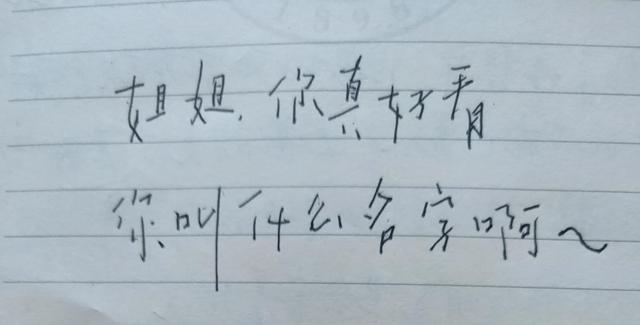 1896
姐姐,你真好看
你叫什么名字啊~